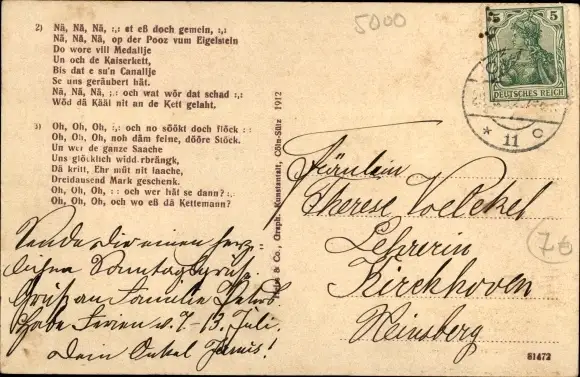 5000
2) Nä, Nä, Nä, :,: st eß doch gemein, :,:
Nä, Nä, Nä, op der Pooz vum Eigelstein
Do wore vill Medallje
Un och de Kaiserkett,
Bis dat e su'n Canallje
Se uns geräubert hät.
Nä, Nä, Nä, :,: och wat wör dat schad :,:
Wöd dä Kääl nit an de Kett gelaht.
3) Oh, Oh, Oh, :,: och no söökt doch flöck :,:
Oh, Oh, Oh, noh däm feine, dööre Stöck.
Un wer de ganze Saache
Uns glöcklich widd'rbrängk,
Dä kritt, Ehr müt nit laache,
Dreidausend Mark geschenk.
Oh, Oh, Oh, :,: och wer hät se dann? :,:
Oh, Oh, Oh, och wo eß dä Kettemann?
Sende dir einen herz-
lichen Sonntagsgruß.
Gruß an Familie
Habe Ferien v. 7-13. Juli.
Dein Onkel
& Co., Graph. Kunstanstalt, Cöln-Sülz 1912
5
5
DEUTSCHES REICH
* 11 c
Fräulein
Therese Voelckel
Lehrerin
Kirchhoven
Heinsberg
76
81472